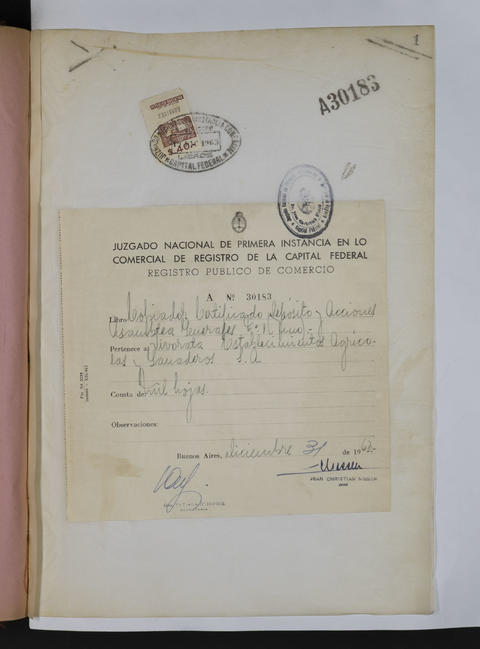 1
A30183
CAPITAL FEDERAL
JUZGADO NACIONAL DE PRIMERA INSTANCIA EN LO
COMERCIAL DE REGISTRO DE LA CAPITAL FEDERAL
REGISTRO PUBLICO DE COMERCIO
A Nº 30183
Libro: Copiador Certificado Depósito y Acciones
Asamblea Generales
Pertenece a: Establecimientos Agríco-
las y Ganaderos S.A
Consta de: mil hojas.
Observaciones:
Buenos Aires, diciembre 31 de 196
JEAN CHRISTIAN NISSEN
JUEZ